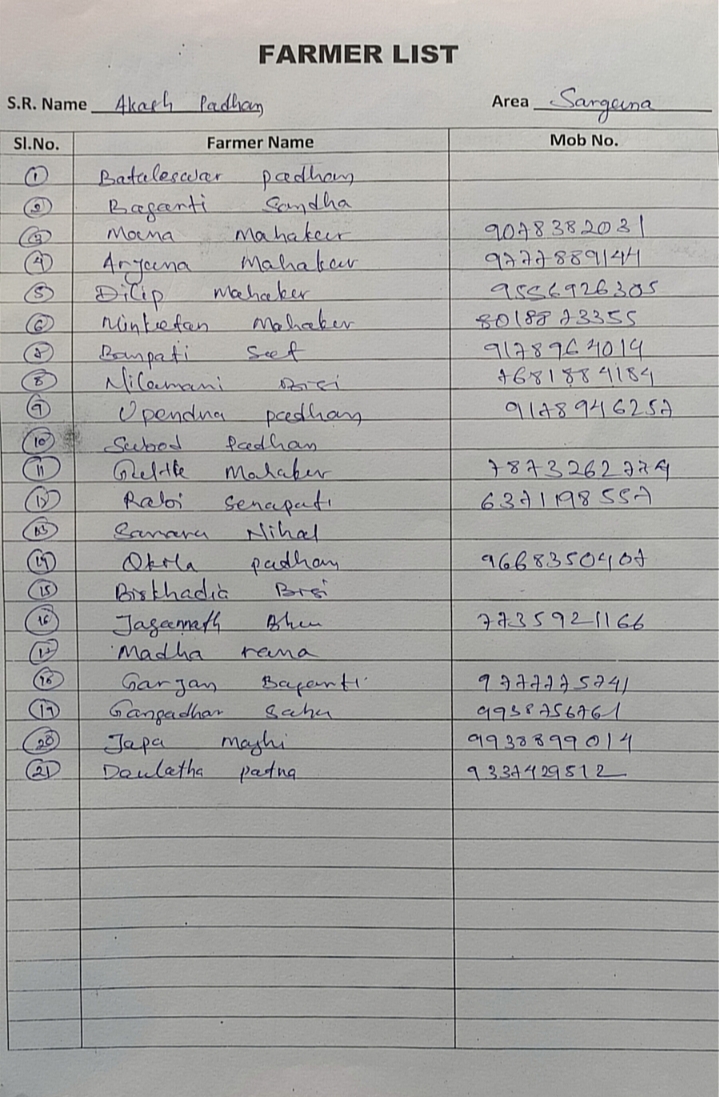 FARMER LIST
S.R. Name Akash Padhan Area Sargeena
Sl.No. Farmer Name Mob No.
1 Bataleswar padhan
2 Baganti Sandha
3 Mona Mahakur 9078382031
4 Arjeena Mahakur 9777889144
5 Dilip Mahaker 9556926305
6 Minketan Mahaker 8018873355
7 Banpati Seet 9178964014
8 Nilamani Bisi 7681884184
9 Upendna padhan 9178946257
10 Subod Padhan
11 Mahaker 7873262774
12 Rabi Senapati 6371198557
13 Sanara Nihal
14 Okila padhan 9668350407
15 Biskhadia Bisi
16 Jagannath Bhu 7735921166
17 Madha rana
18 Garjan Baganti 9777775741
19 Gangadhar Sahu 9938756761
20 Japa majhi 9938899014
21 Daulatha patna 9337429512